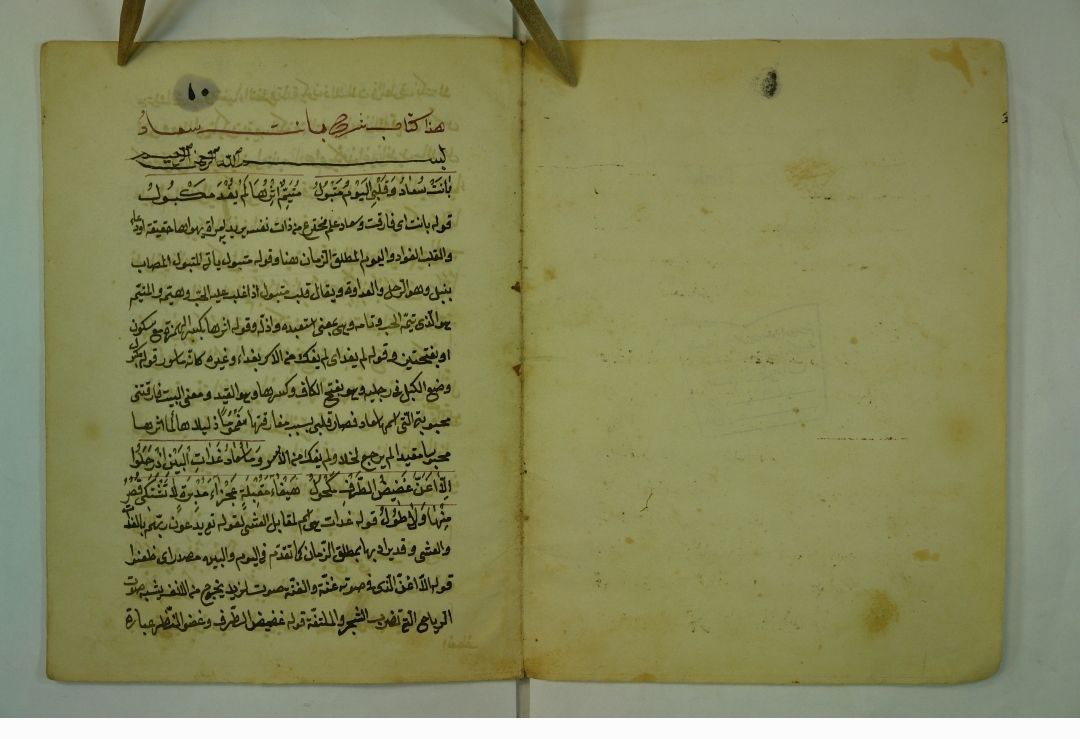 ١٠
هذا كتاب شرح بانت سعاد
بسم الله الرحمن الرحيم
بانَتْ سُعادُ وَقَلْبِي اليَوْمَ مَتْبُولُ مُتَيَّمٌ اثْرُهَا لَمْ يُفْدَ مَكْبُولُ
قوله بانت اى فارقت وسعاد علم مخترع من ذات نفسه يريد امراة يهواها حقيقة اوادعاء
والقلب الفواد واليوم المطلق الزمان هنا وقوله متبول ياتى المتبول المصاب
بتبل وهو الذحل والعداوة ويقال قلب متبول اذا غلب عليه الحب وهيمه والمتيم
هو الذى تيمه الحب وتامه وهى بمعنى استعبده واذله وقوله اثرها بكسر الهمزة مع سكون
او بفتحتين وقوله لم يفد اى لم يفك من الاسر بفداء وغيره كانه ماسور قوله مكبول
وضع الكبل فى رجليه وهو بفتح الكاف وكسرها وهو القيد ومعنى البيت فارقتنى
محبوبة التى اسمها سعاد فصار قلبى بسبب مفارقتها ذليلا هائما اثرها
محبوسا مقيدا لم يرجع ولم يفك من الأسر وَمَا سُعَادُ غَدَاتَ الْبَيْنِ اذْ رَحَلُوا
اِلَّا اَغَنَّ غَضِيضُ الطَّرْفِ مَكْحُولُ هَيْفَاءُ مُقْبِلَةً عَجْزَاءُ مُدْبِرَةً لَا يُشْتَكَى قِصَرٌ
مِنْهَا وَلَا طُولُ قوله غدات هى اسم لمقابل العشى لقوله تع يدعون ربهم بالغداة
والعشى وقد يراد بها بمطلق الزمان كما تقدم فى اليوم والبين مصدر اى ظعنوا
قوله الا اغن الذى فى صوته غنة والغنة صوت لذيذ يخرج من الانف يشبه صوت
الرياح التى تضرب الشجر والملتفة قوله غضيض الطرف وغض النظر عبارة